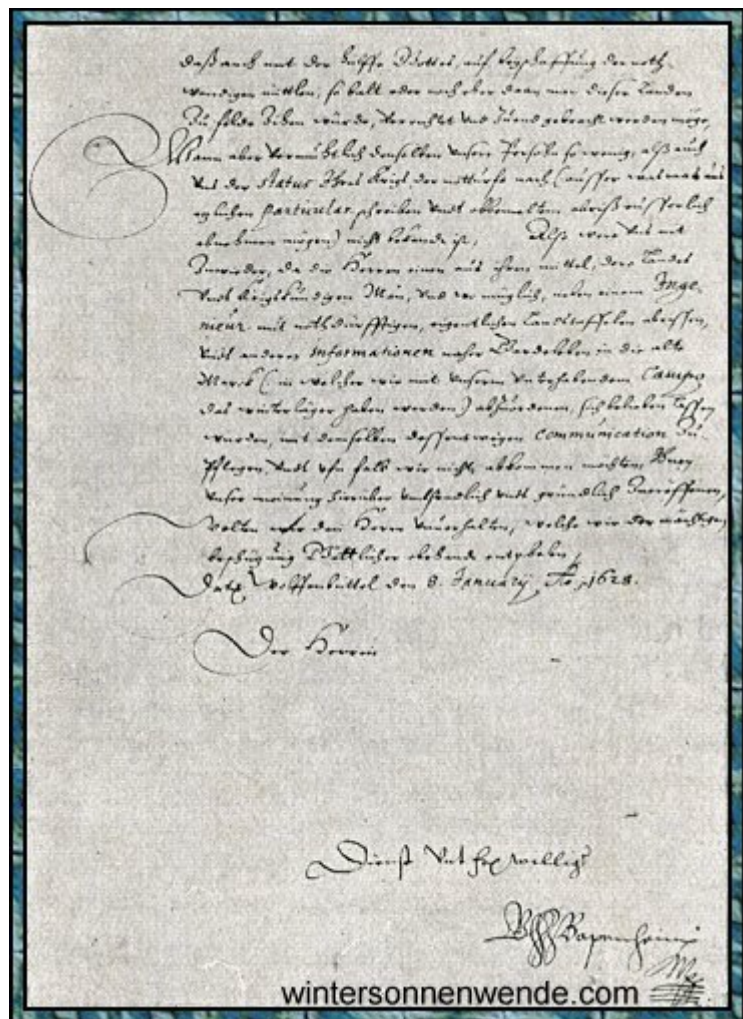 daß auch mit der hülffe Gottes, auf beyschaffung der noth-
wendigen mittlen, so balt oder noch eher dann man dieser Landen
Zu felde Zihen würde, verrichtet vnd Zuend gebracht werden möge,
Wann aber vermühtlich denselben vnsere Persohn so wenig, alß auch
vns der Status Ihres Kriegs, der notturfft nach (ausser was wir aus
etzlichen particular schreiben vndt abriß eusserlich
abnehmen mögen) nicht bekandt ist, Alß were vns nit
Zuwieder, da die Herren einen aus ihrem mittel, dero Landes
vndt Kriegskündigen Man, vnd wo müglich, neben einem Inge-
nieur mit nothdürfftigen, eigentlichen Landtaffelen abrissen,
vndt anderen Informationen naher Gardeleben in die alte
Marck (in welcher wir mit vnserm vnterhabendem Campo
das winterläger haben werden) abzuordenen, sich belieben lassen
wurden, mit demselben dessentwegen communication Zu-
Pflegen, vndt vfn fall wir nicht abkommen möchten Ihnen
vnser meinung hierüber vndt gründlich Zueröffenen,
Wolten wir den Herrn, welche wir der
Göttlicher obhandt entpfehlen,
Dat. Wolffenbüttel den 8. January, Ao. 1628.
Der Herren
Dienst willigs
Papenheim
wintersonnenwende.com